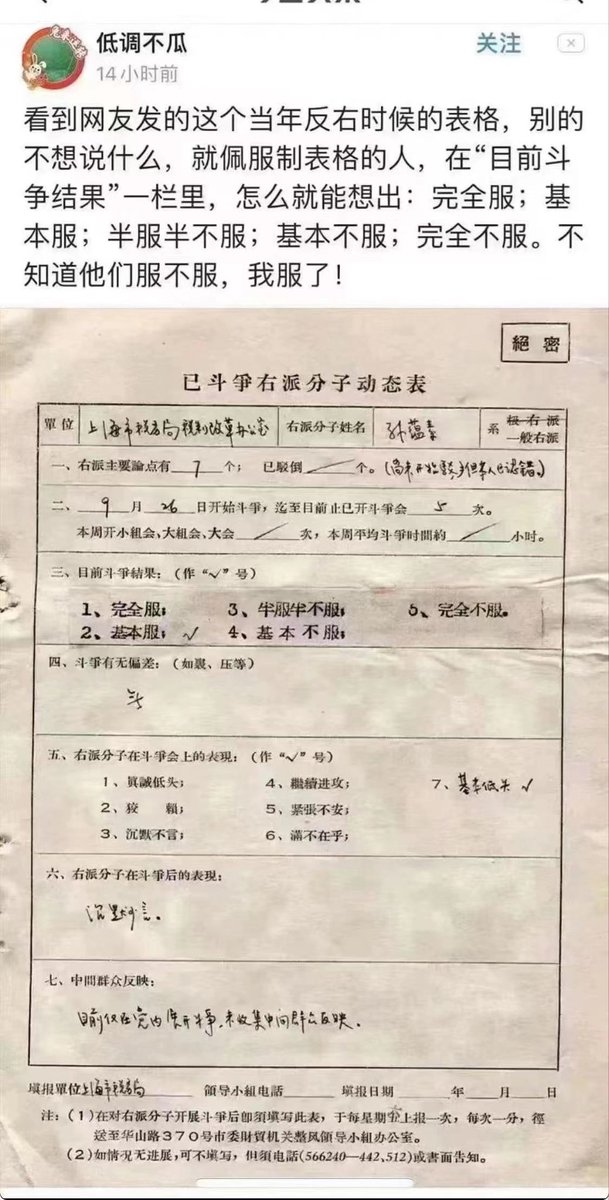 低调不瓜
关注
14小时前
看到网友发的这个当年反右时候的表格，别的
不想说什么，就佩服制表格的人，在“目前斗
争结果”一栏里，怎么就能想出：完全服；基
本服；半服半不服；基本不服；完全不服。不
知道他们服不服，我服了！
絕密
已斗爭右派分子动态表
單位 上海市税务局税制改革办公室 右派分子姓名 孙蕴素 系 极右派 一般右派
一、右派主要論点有 7 个；已駁倒 ／ 个。
二、9月26日开始斗爭，迄至目前止已开斗爭会 5 次。
本周开小組会、大組会、大会 ／ 次，本周平均斗爭时間約 ／ 小时。
三、目前斗爭結果：（作“√”号）
1、完全服； 3、半服半不服； 5、完全不服。
2、基本服； √ 4、基本不服；
四、斗爭有无偏差：（如裹、压等）
五、右派分子在斗爭会上的表現：（作“√”号）
1、眞誠低头； 4、繼續进攻； 7、基本低头 √
2、狡賴； 5、紧張不安；
3、沉默不言； 6、滿不在乎；
六、右派分子在斗爭后的表現：
沉默少言。
七、中間群众反映：
目前仅在党内展开斗争，未收集中间群众反映。
塡报單位 上海市税务局 領导小組电話 塡报日期 年 月 日
注：（1）在对右派分子开展斗爭后即須塡写此表，于每星期 上报一次，每次一份，徑
送至华山路370号市委財貿机关整风領导小組办公室。
（2）如情况无进展，可不塡写，但須电話（566240—442,512）或書面告知。